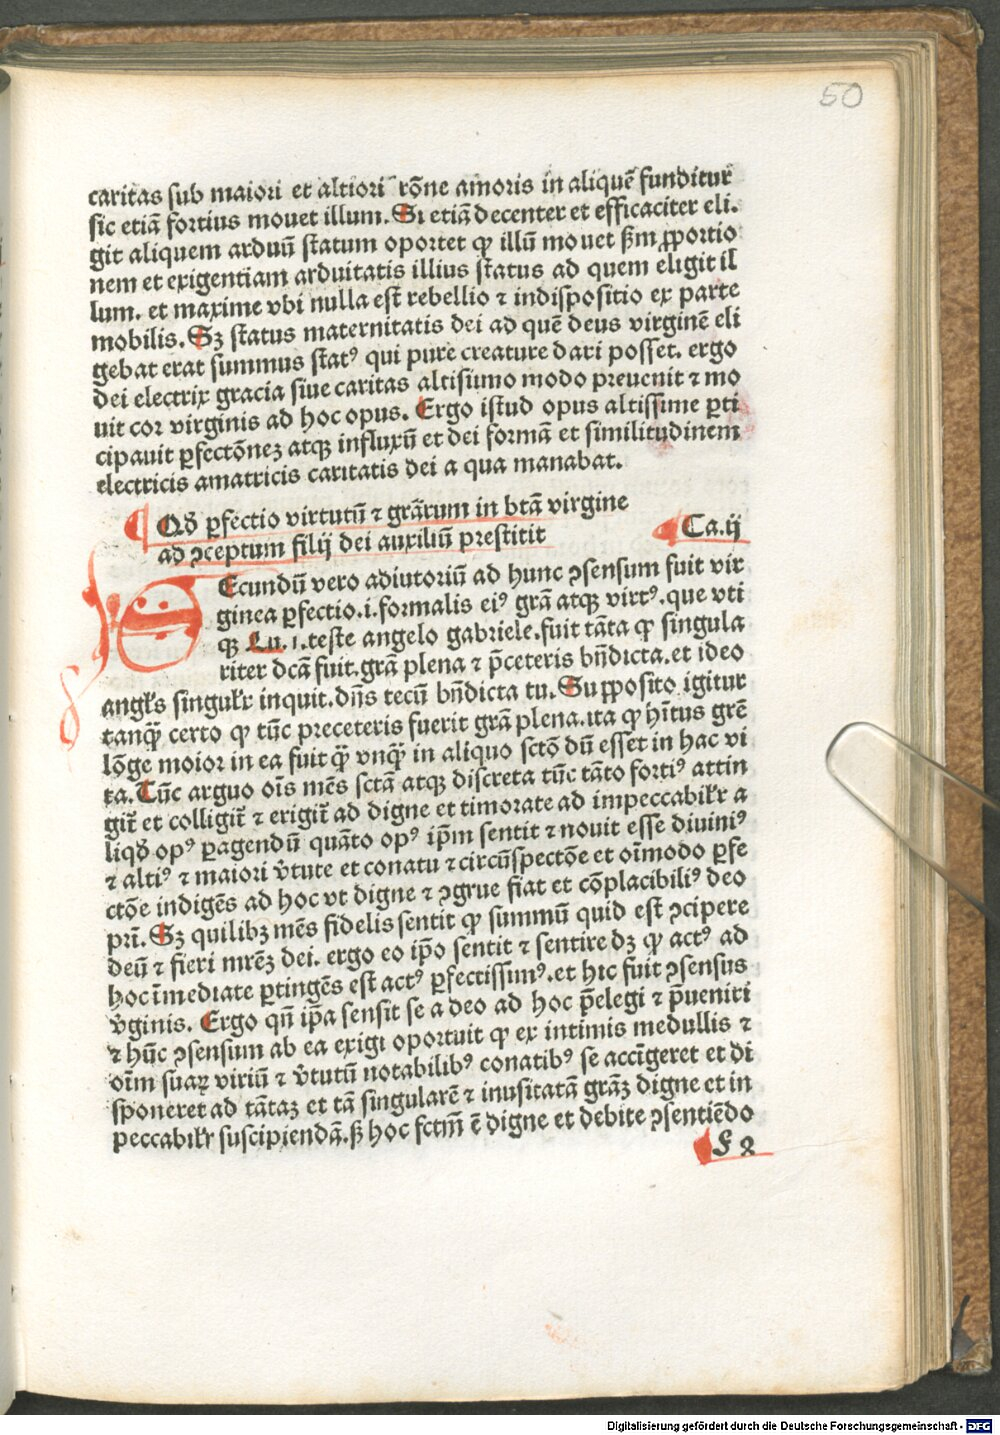 50
caritas sub maiori et altiori rõne amoris in aliquẽ funditur
sic etiã fortius mouet illum. Si etiã decenter et efficaciter eli.
git aliquem arduũ statum oportet ꝙ illũ mouet ẞm ꝓportio
nem et exigentiam arduitatis illius status ad quem eligit il
lum. et maxime vbi nulla est rebellio ⁊ indispositio ex parte
mobilis. Sꝫ status maternitatis dei ad quẽ deus virginẽ eli
gebat erat summus statꝰ qui pure creature dari posset. ergo
dei electrix gracia siue caritas altisiimo modo preuenit ⁊ mo
uit cor virginis ad hoc opus. Ergo istud opus altissime ꝑti
cipauit ꝑfectõneꝫ atqꝫ influxũ et dei formã et similitudinem
electricis amatricis caritatis dei a qua manabat.
Qđ ꝑfectio virtutũ ⁊ grãrum in btã virgine
ad ꝯceptum filij dei auxiliũ prestitit Ca.ij
SEcundũ vero adiutoriũ ad hunc ꝯsensum fuit vir
ginea ꝑfectio.i.formalis eiꝰ grã atqꝫ virtꝰ.que vti
qꝫ Lu.1.teste angelo gabriele.fuit tãta ꝙ singula
riter dcã fuit.grã plena ⁊ p̃ceteris bñdicta.et ideo
angłs singułr inquit.dñs tecũ bñdicta tu. Supposito igitur
tanq̃ȝ certo ꝙ tũc preceteris fuerit grã plena.ita ꝙ hĩtus grẽ
lõge moior in ea fuit q̃ȝ vnq̃ȝ in aliquo sctõ dũ esset in hac vi
ta. Tũc arguo oĩs mẽs sctã atqꝫ discreta tũc tãto fortiꝰ attin
git̃ et colligit̃ ⁊ erigit̃ ad digne et timorate ad impeccabiłr a
liqđ opꝰ ꝑagendũ quãto opꝰ ip̃m sentit ⁊ nouit esse diuiniꝰ
⁊ altiꝰ ⁊ maiori ṽtute et conatu ⁊ circũspectõe et oĩmodo ꝑfe
ctõe indigẽs ad hoc vt digne ⁊ ꝯgrue fiat et cõplacibiliꝰ deo
pri̅. Sꝫ quilibꝫ mẽs fidelis sentit ꝙ summũ quid est ꝯcipere
deũ ⁊ fieri mrẽꝫ dei. ergo eo ip̃o sentit ⁊ sentire dꝫ ꝙ actꝰ ad
hoc ĩmediate ꝑtingẽs est actꝰ ꝑfectissimꝰ.et hic fuit ꝯsensus
ṽginis. Ergo qñ ip̃a sensit se a deo ad hoc p̃elegi ⁊ p̃ueniri
⁊ hũc ꝯsensum ab ea exigi oportuit ꝙ ex intimis medullis ⁊
oĩm suaꝝ viriũ ⁊ ṽtutũ notabilibꝰ conatibꝰ se accĩgeret et di
sponeret ad tãtaꝫ et tã singularẽ ⁊ inusitatã grãꝫ digne et in
peccabiłr suscipiendã.ẞ hoc fctm̃ ẽ digne et debite ꝯsentiẽdo
f 2
Digitalisierung gefördert durch die Deutsche Forschungsgemeinschaft - DFG